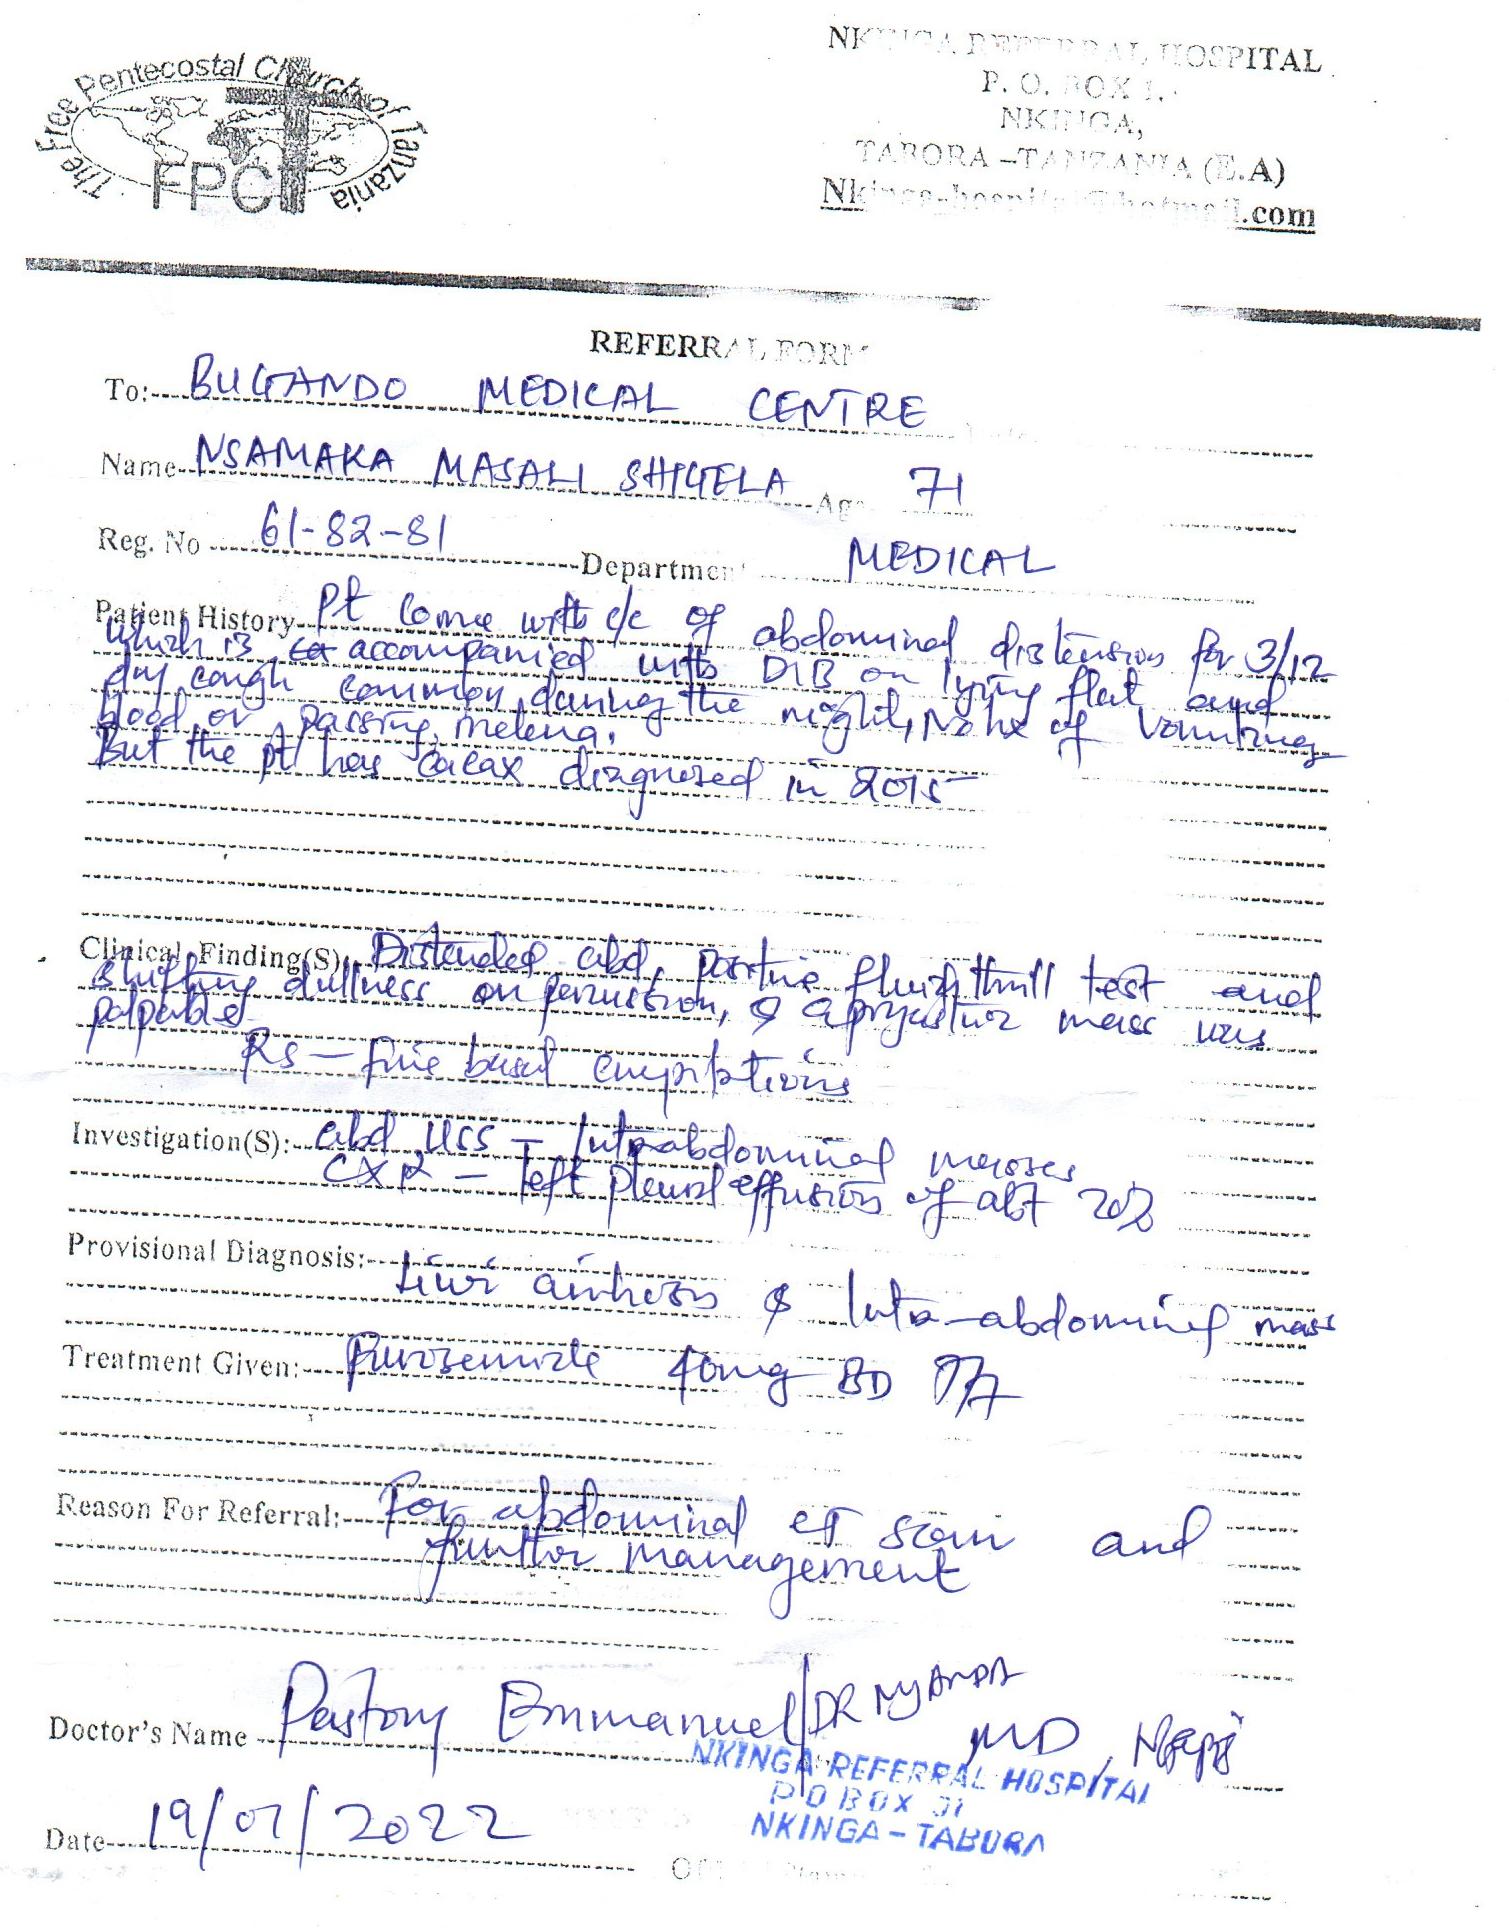 The Free Pentecostal Church of Tanzania
FPCT
NKINGA REFERRAL HOSPITAL
P. O. BOX 1,
NKINGA,
TABORA –TANZANIA (E.A)
Nkinga-hospital@hotmail.com
REFERRAL FORM
To: BUGANDO MEDICAL CENTRE
Name NSAMAKA MASALI SHIGELA Age 71
Reg. No 61-82-81 Department MEDICAL
Patient History Pt come with c/c of abdominal distension for 3/12
which is accompanied with DIB on lying flat and
dry cough common during the night, No hx of vomiting
blood or passing melena.
But the pt has diagnosed in 2015
Clinical Finding(S): Distended abd, positive fluid thrill test and
shifting dullness on percussion, & epigastric mass was
palpable
RS – fine basal crepitations
Investigation(S): abd USS – Intraabdominal masses
CXR – left pleural effusion of abt 20%
Provisional Diagnosis: Liver cirrhosis & Intra-abdominal mass
Treatment Given: Furosemide 40mg BD
Reason For Referral: For abdominal CT scan and
further management
Doctor's Name Pastory Emmanuel / DR NYANDA MD,
NKINGA REFERRAL HOSPITAL
P O BOX 01
NKINGA – TABORA
Date 19/07/2022